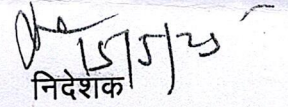 15/5/25
निदेशक